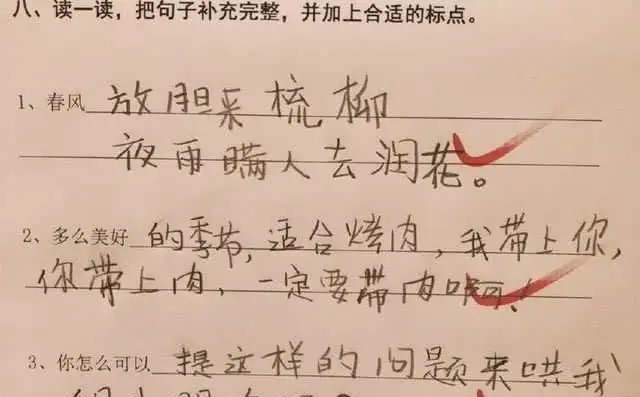 八、读一读，把句子补充完整，并加上合适的标点。
1、春风 放胆来梳柳
夜雨瞒人去润花。
2、多么美好 的季节，适合烤肉，我带上你，
你带上肉，一定要带肉啊！
3、你怎么可以 提这样的问题来哄我